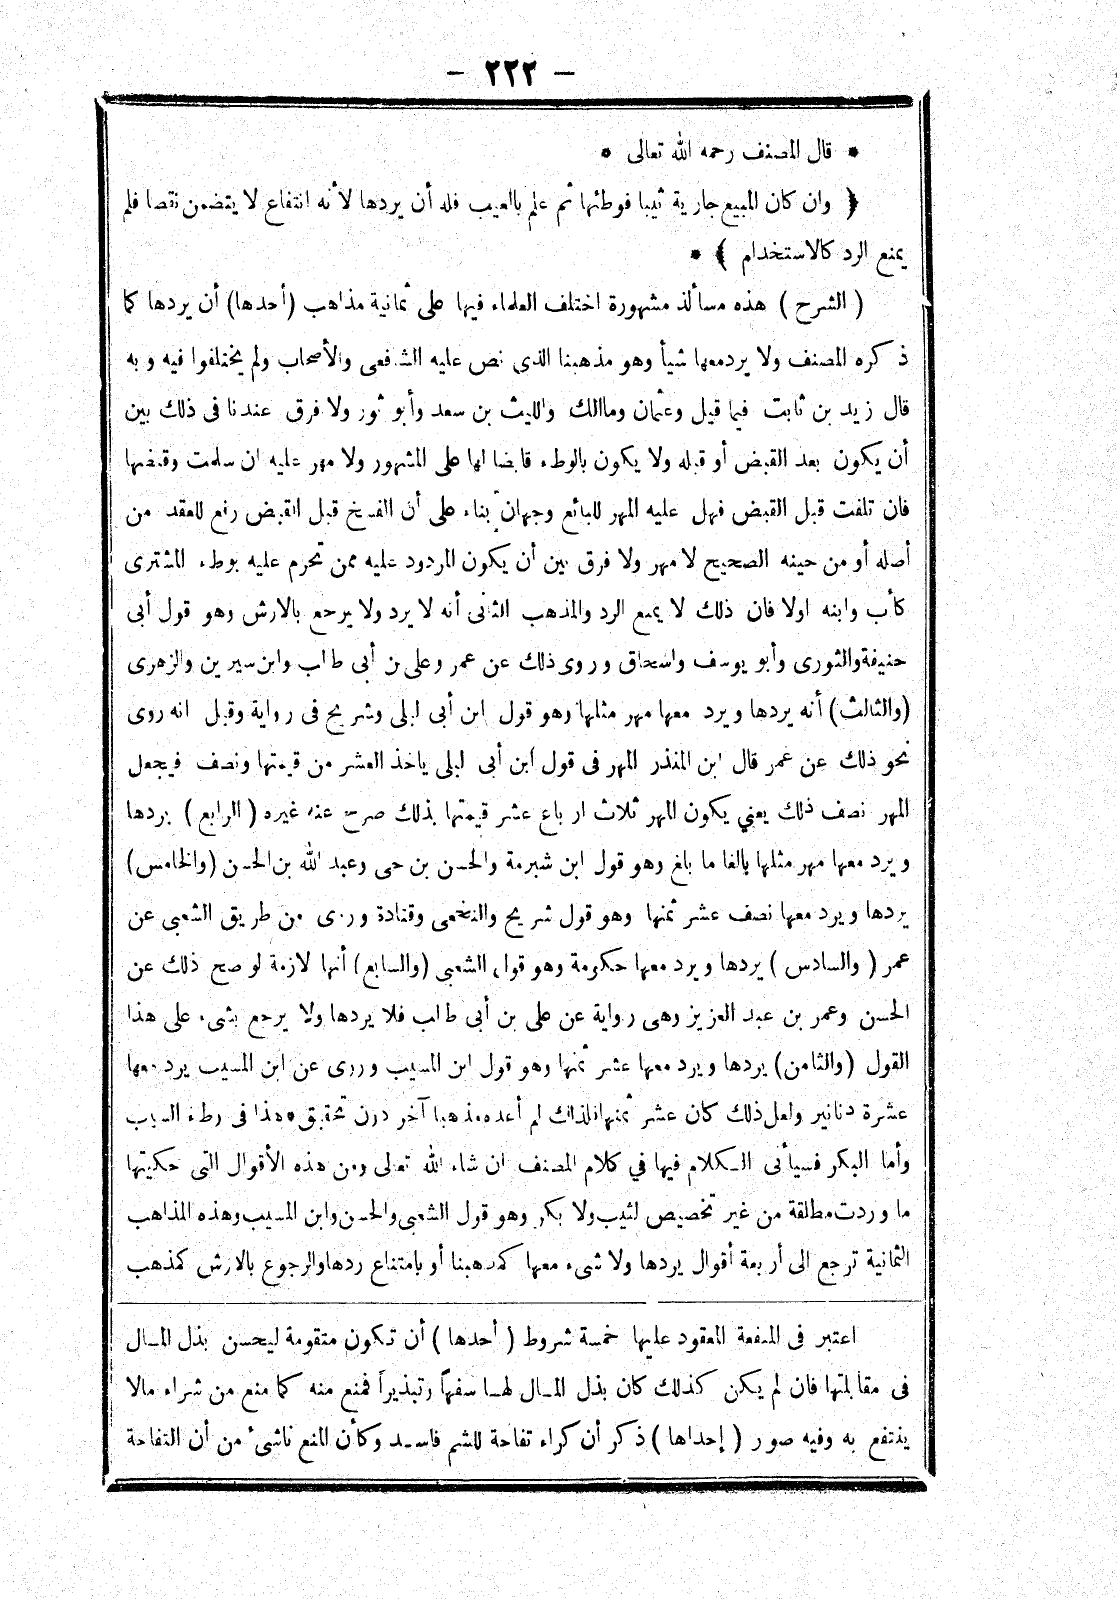 — ٢٢٢ —
* قال المصنف رحمه الله تعالى *
﴿ وان كان المبيع جارية ثيبا فوطئها ثم علم بالعيب فله أن يردها لأنه انتفاع لا يتضمن نقصا فلم
يمنع الرد كالاستخدام ﴾ *
( الشرح ) هذه مسألة مشهورة اختلف العلماء فيها على ثمانية مذاهب (أحدها) أن يردها كما
ذكره المصنف ولا يرد معها شيأ وهو مذهبنا الذى نص عليه الشافعى والأصحاب ولم يختلفوا فيه وبه
قال زيد بن ثابت فيما قيل وعثمان ومالك والليث بن سعد وأبو ثور ولا فرق عندنا فى ذلك بين
أن يكون بعد القبض أو قبله ولا يكون بالوطء قابضا لها على المشهور ولا مهر عليه ان سلمت وقبضها
فان تلفت قبل القبض فهل عليه المهر للبائع وجهان بناء على أن الفسخ قبل القبض رفع للعقد من
أصله أو من حينه الصحيح لا مهر ولا فرق بين أن يكون المردود عليه ممن تحرم عليه بوطء المشترى
كأب وابنه اولا فان ذلك لا يمنع الرد والمذهب الثانى أنه لا يرد ولا يرجع بالارش وهو قول أبى
حنيفة والثورى وأبو يوسف واسحاق وروى ذلك عن عمر وعلى بن أبى طالب وابن سيرين والزهرى
(والثالث) أنه يردها ويرد معها مهر مثلها وهو قول ابن أبى ليلى وشريح فى رواية وقيل انه روى
نحو ذلك عن عمر قال ابن المنذر المهر فى قول ابن أبى ليلى ياخذ العشر من قيمتها ونصف فيجعل
المهر نصف ذلك يعني يكون المهر ثلاث ارباع عشر قيمتها بذلك صرح عنه غيره ( الرابع ) يردها
ويرد معها مهر مثلها بالغا ما بلغ وهو قول ابن شبرمة والحسن بن حى وعبد الله بن الحسن (والخامس)
يردها ويرد معها نصف عشر ثمنها وهو قول شريح والنخعى وقتادة وروى من طريق الشعبى عن
عمر ( والسادس ) يردها ويرد معها حكومة وهو قول الشعبى (والسابع) أنها لازمة لو صح ذلك عن
الحسن وعمر بن عبد العزيز وهى رواية عن على بن أبى طالب فلا يردها ولا يرجع بشىء على هذا
القول (والثامن) يردها ويرد معها عشر ثمنها وهو قول ابن المسيب وروى عن ابن المسيب يرد معها
عشرة دنانير ولعل ذلك كان عشر ثمنها فلذلك لم أعده مذهبا آخر دون تحقيق هذا فى وطء الثيب
وأما البكر فسيأتى الكلام فيها في كلام المصنف ان شاء الله تعالى ومن هذه الأقوال التى حكيتها
ما وردت مطلقة من غير تخصيص لثيب ولا بكر وهو قول الشعبى والحسن وابن المسيب وهذه المذاهب
الثمانية ترجع الى أربعة أقوال يردها ولا شىء معها كمذهبنا أو بامتناع ردها والرجوع بالارش كمذهب
اعتبر فى المنفعة المعقود عليها خمسة شروط ( أحدها ) أن تكون متقومة ليحسن بذل المال
فى مقابلتها فان لم يكن كذلك كان بذل المال لها سفهاً وتبذيراً فمنع منه كما منع من شراء مالا
ينتفع به وفيه صور ( إحداها ) ذكر أن كراء تفاحة للشم فاسد وكأن المنع ناشئ من أن التفاحة